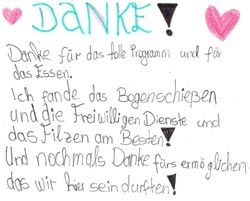 DANKE!
Danke für das tolle Programm und für
das Essen.
Ich fande das Bogenschießen
und die Freiwilligen Dienste und
das Filzen am Besten!
Und nochmals Danke fürs ermöglichen,
das wir hier sein durften!